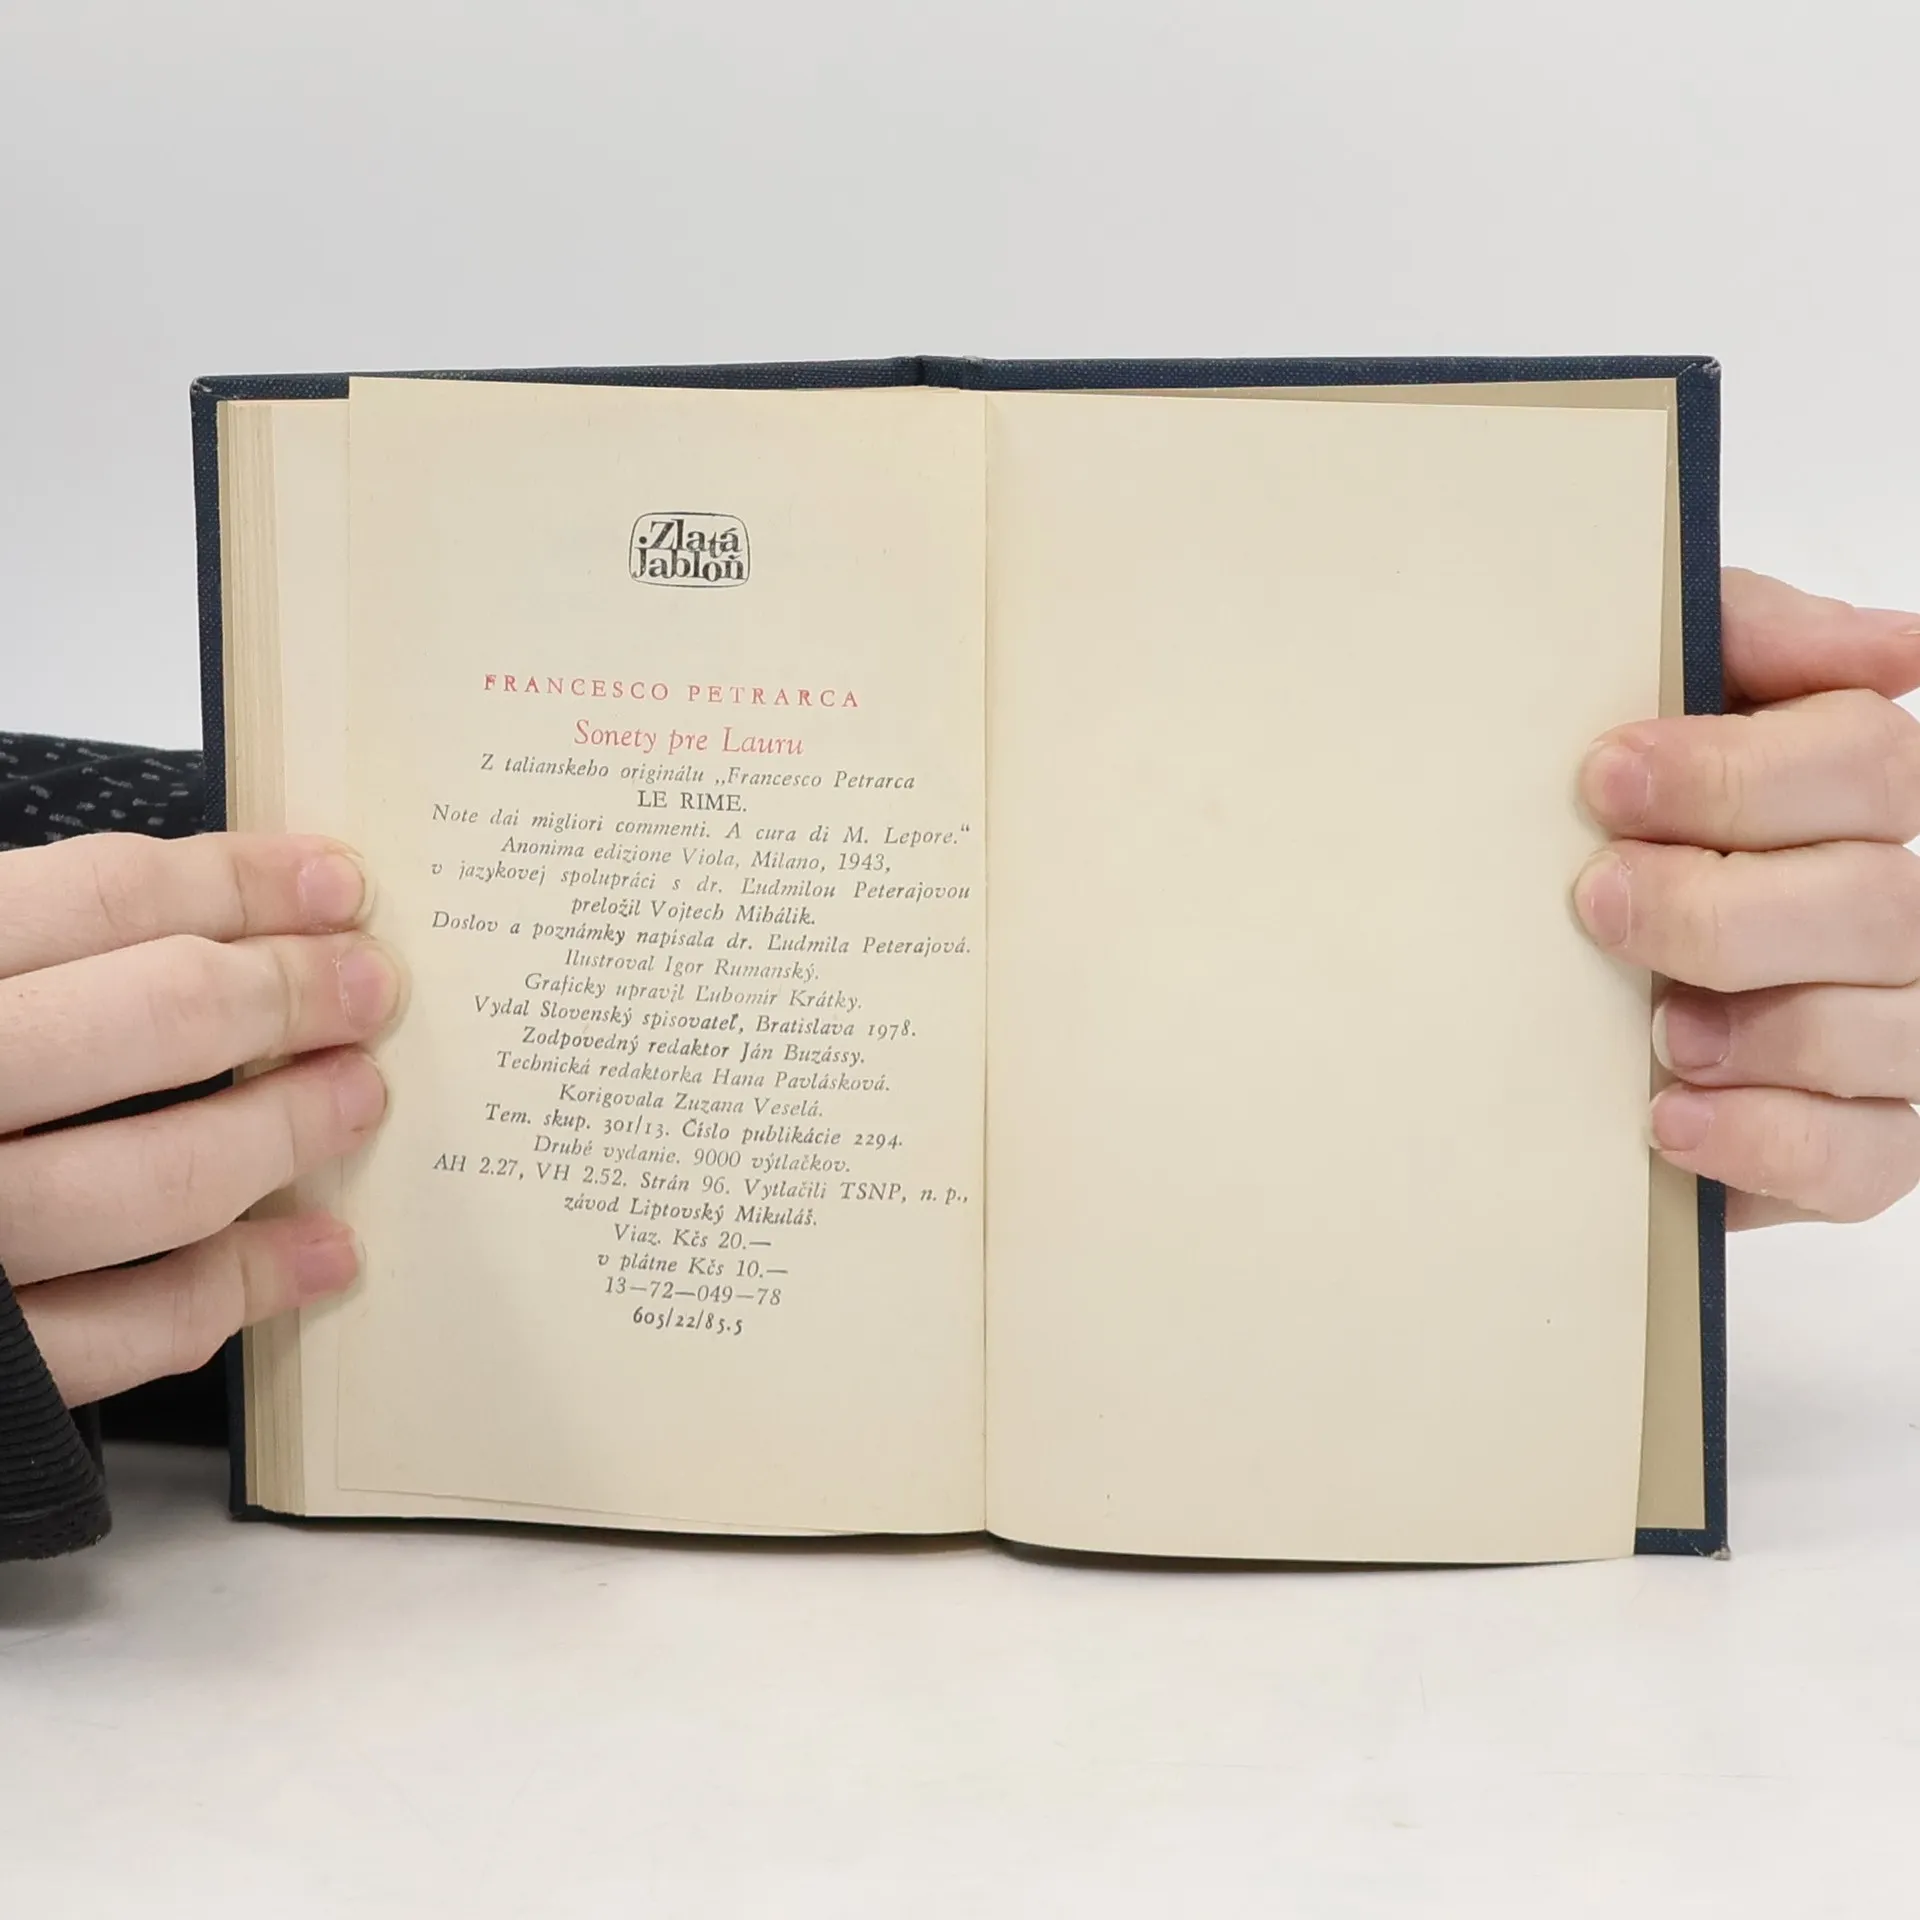 Zlatá
Jabloň
FRANCESCO PETRARCA
Sonety pre Lauru
Z talianskeho originálu „Francesco Petrarca
LE RIME.
Note dai migliori commenti. A cura di M. Lepore.“
Anonima edizione Viola, Milano, 1943,
v jazykovej spolupráci s dr. Ľudmilou Peterajovou
preložil Vojtech Mihálik.
Doslov a poznámky napísala dr. Ľudmila Peterajová.
Ilustroval Igor Rumanský.
Graficky upravil Ľubomír Krátky.
Vydal Slovenský spisovateľ, Bratislava 1978.
Zodpovedný redaktor Ján Buzássy.
Technická redaktorka Hana Pavlásková.
Korigovala Zuzana Veselá.
Tem. skup. 301/13. Číslo publikácie 2294.
Druhé vydanie. 9000 výtlačkov.
AH 2.27, VH 2.52. Strán 96. Vytlačili TSNP, n. p.,
závod Liptovský Mikuláš.
Viaz. Kčs 20.—
v plátne Kčs 10.—
13—72—049—78
605/22/85.5